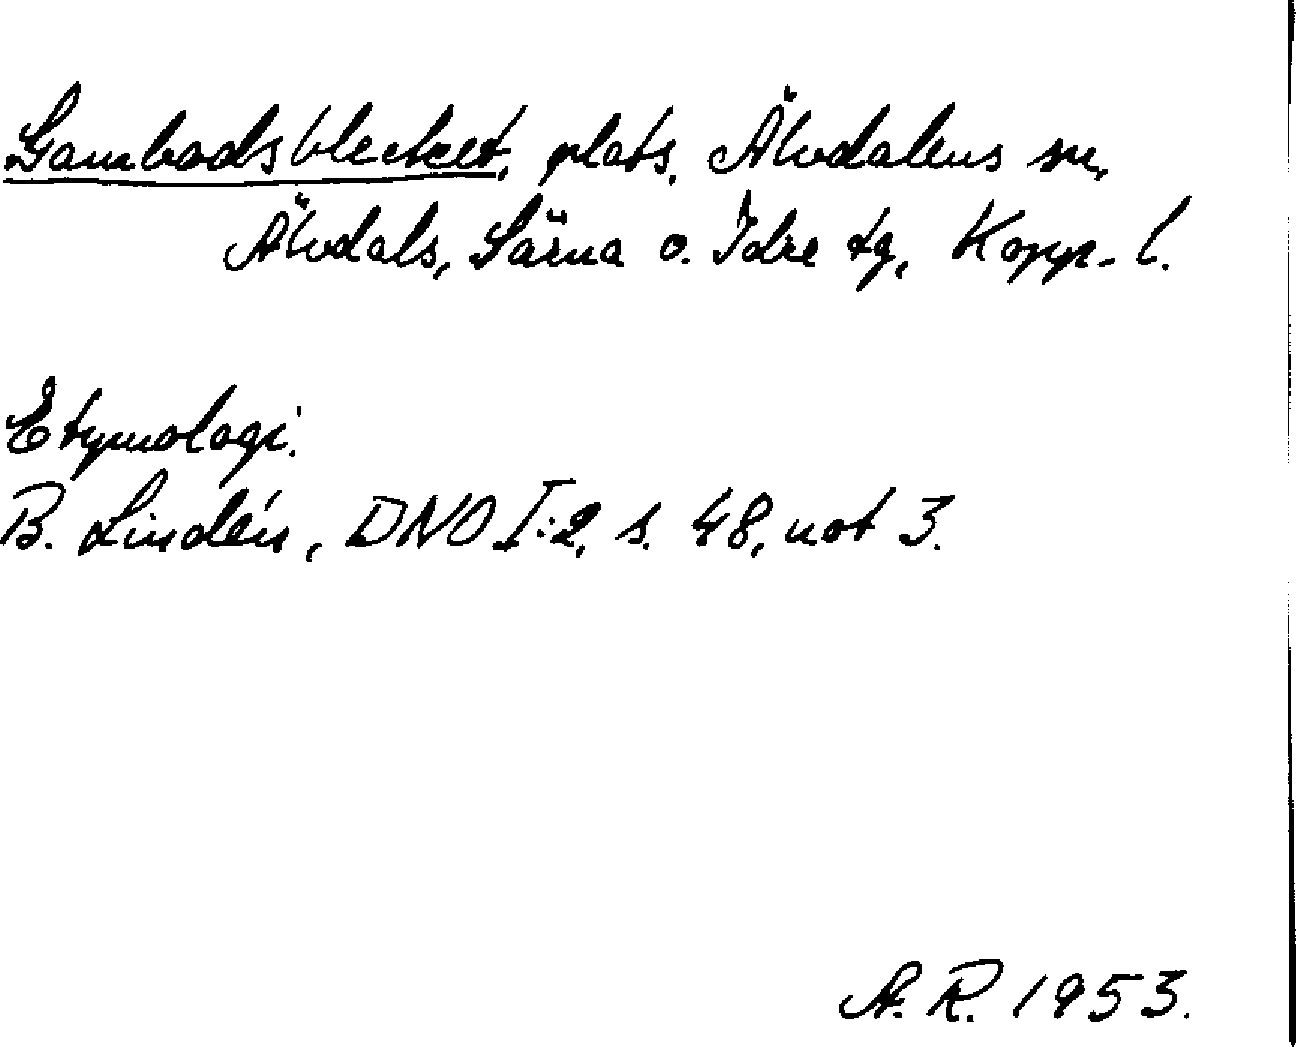 Gambodsblecket, plats, Älvdalens sn,
Älvdals, Särna o. Idre tg, Kopp. l.
Etymologi.
B. Lindén, DNO I:2, s. 48, not 3.
A. R. 1953.